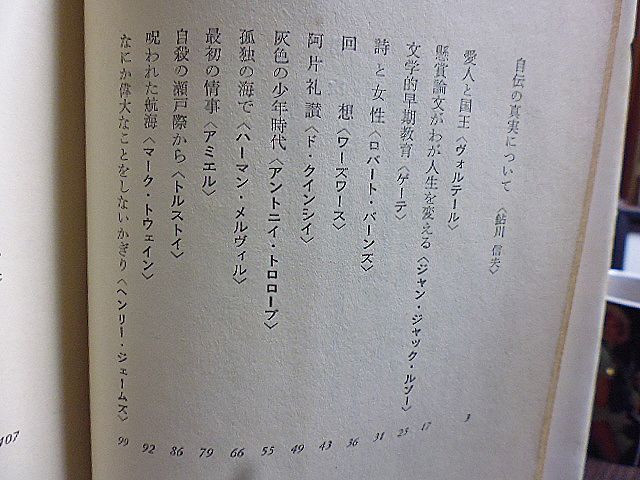 自伝の真実について〈鮎川 信夫〉 3
愛人と国王〈ヴォルテール〉 17
懸賞論文がわが人生を変える〈ジャン・ジャック・ルソー〉 23
文学的早期教育〈ゲーテ〉 31
詩と女性〈ロバート・バーンズ〉 36
回想〈ワーズワース〉 43
阿片礼讃〈ド・クインシイ〉 49
灰色の少年時代〈アントニイ・トロロープ〉 55
孤独の海で〈ハーマン・メルヴィル〉 66
最初の情事〈アミエル〉 79
自殺の瀬戸際から〈トルストイ〉 86
呪われた航海〈マーク・トウェイン〉 92
なにか偉大なことをしないかぎり〈ヘンリー・ジェームズ〉 99
107